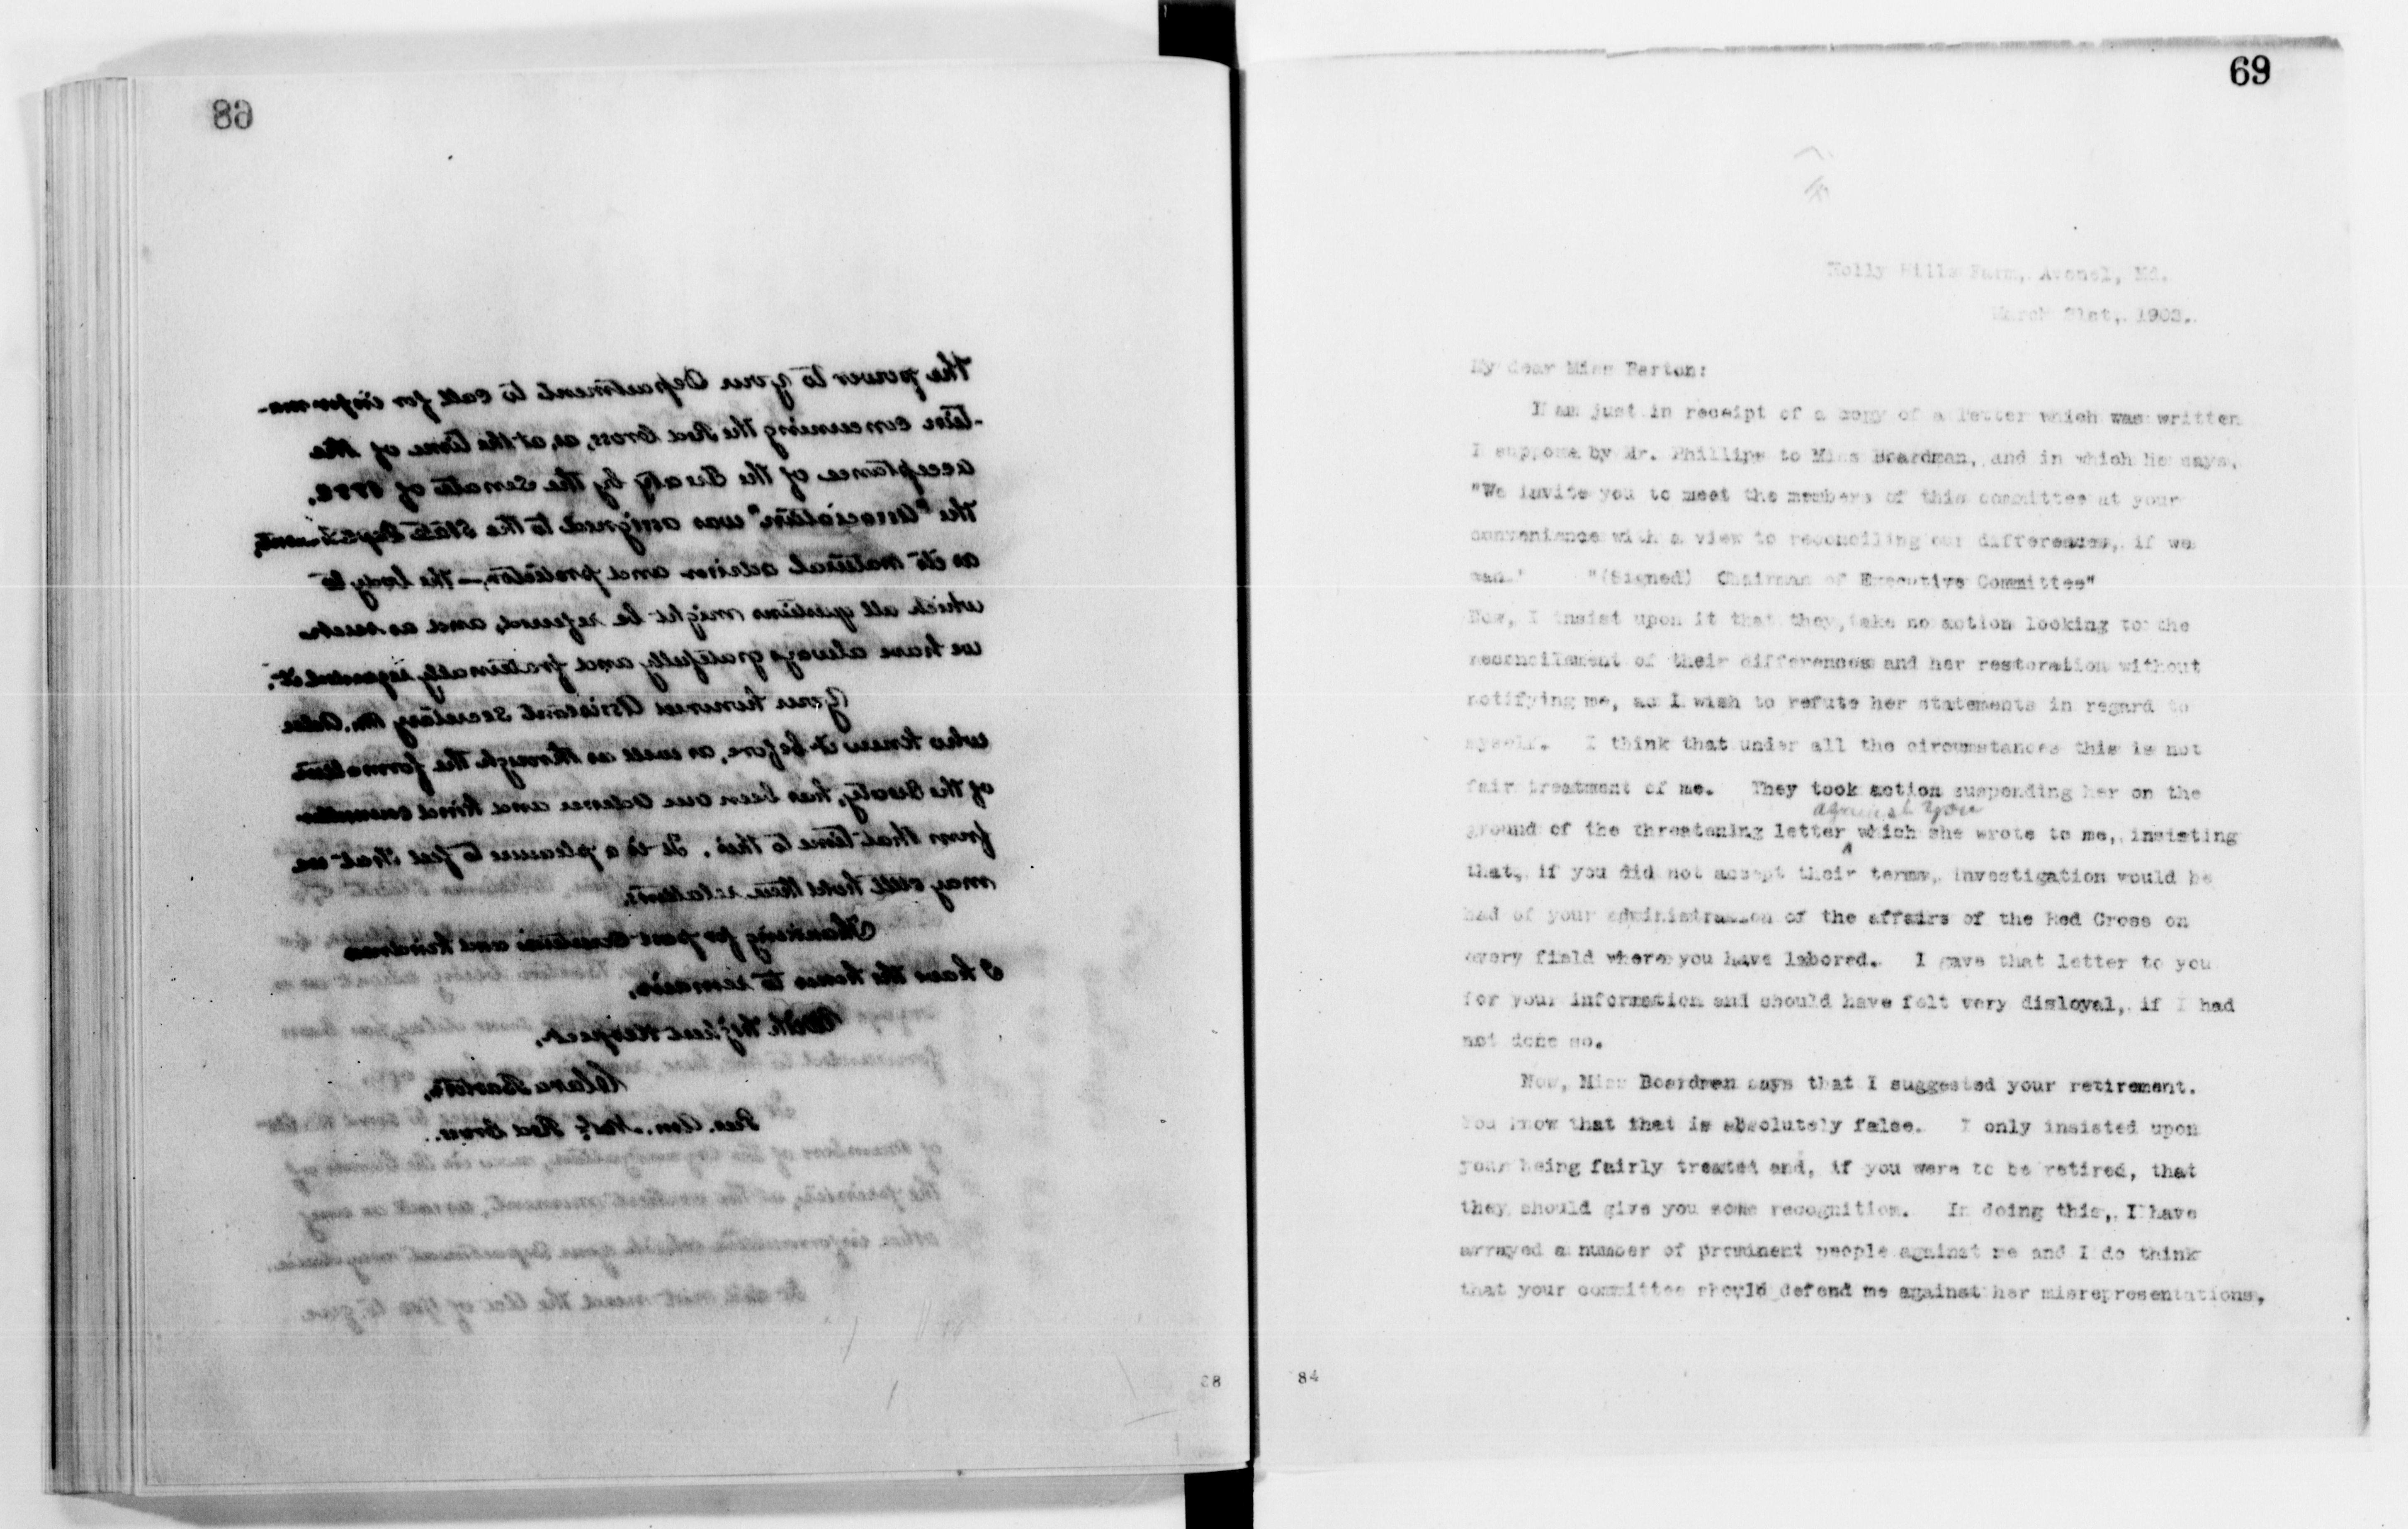 68
The power to your Department to call for informa-
-tion concerning the Red Cross, as, at the time of the
acceptance of the Treaty by the Senate of 1882,
the "Association" was assigned to the State Department,
as its natural advisor and protector, — the body to
which all questions might be referred, and as such
we have always gratefully and fraternally regarded it.
Your honored Assistant Secretary Mr. Adee
who knew it before, as well as through the formation
of the Society, has been our adviser and kind counsellor
from that time to this. It is a pleasure to feel that we
may still hold these relations.
Thanking for past courtesies and kindness
I have the honor to remain,
With highest respect,
Clara Barton,
Pres. Am. Nat. Red Cross.
69
Holly Hills Farm, Avonel, Md.
March 21st, 1903.
My dear Miss Barton:
I am just in receipt of a copy of a letter which was written
I suppose by Mr. Phillips to Miss Boardman, and in which he says,
"We invite you to meet the members of this committee at your
convenience with a view to reconciling our differences, if we
can." "(Signed) Chairman of Executive Committee"
Now, I insist upon it that they take no action looking to the
reconcilement of their differences and her restoration without
notifying me, as I wish to refute her statements in regard to
myself. I think that under all the circumstances this is not
fair treatment of me. They took action suspending her on the
against you
ground of the threatening letter which she wrote to me, insisting
that, if you did not accept their terms, investigation would be
had of your administration of the affairs of the Red Cross on
every field where you have labored. I gave that letter to you
for your information and should have felt very disloyal, if I had
not done so.
Now, Miss Boardman says that I suggested your retirement.
You know that that is absolutely false. I only insisted upon
your being fairly treated and, if you were to be retired, that
they should give you some recognition. In doing this, I have
arrayed a number of prominent people against me and I do think
that your committee should defend me against her misrepresentations,
84